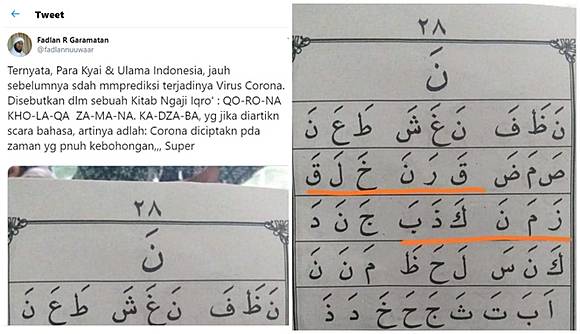 Tweet
Fadlan R Garamatan
@fadlannuuwaar
Ternyata, Para Kyai & Ulama Indonesia, jauh
sebelumnya sdah mmprediksi terjadinya Virus Corona.
Disebutkan dlm sebuah Kitab Ngaji Iqro' : QO-RO-NA
KHO-LA-QA ZA-MA-NA. KA-DZA-BA, yg jika diartikn
scara bahasa, artinya adlah: Corona diciptakn pda
zaman yg pnuh kebohongan,,, Super
٢٨
نَ
نَ ظَ فَ نَ غَ شَ طَ عَ نَ
٢٨
نَ
نَ ظَ فَ نَ غَ شَ طَ عَ نَ
صَ مَ ضَ قَ رَ نَ خَ لَ قَ
زَ مَ نَ كَ ذَ بَ جَ نَ دَ
كَ نَ سَ لَ حَ ظَ مَ نَ نَ
اَ بَ تَ ثَ جَ حَ خَ دَ ذَ